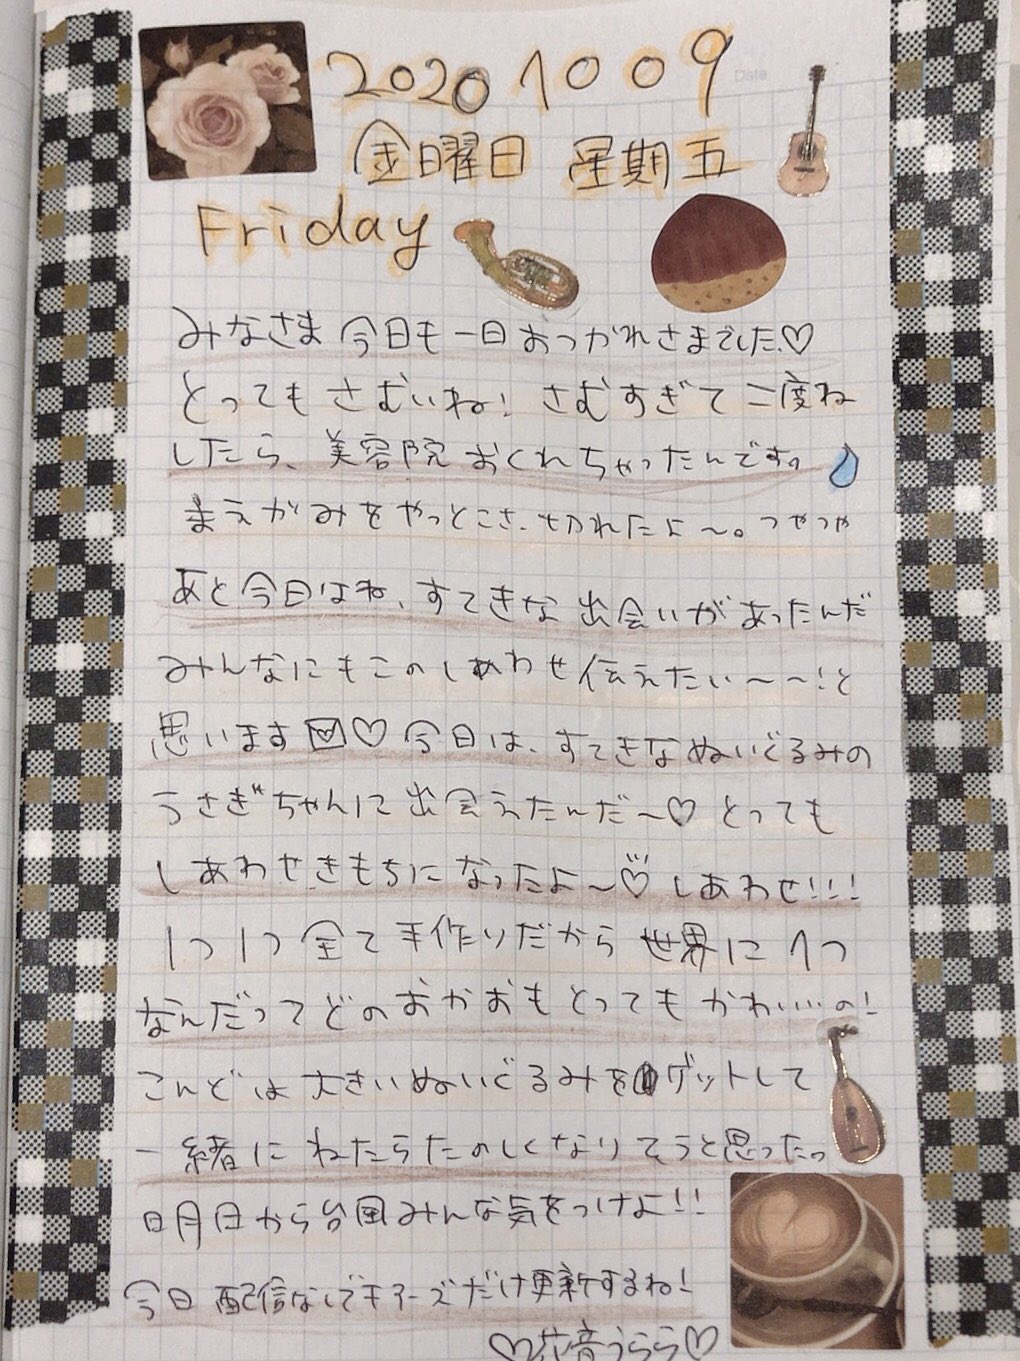 2020 10 09
Date
金曜日 星期五
Friday
みなさま 今日も一日おつかれさまでした♡
とってもさむいね! さむすぎて二度ね
したら、美容院おくれちゃったんです。
まえがみをやっとこさ、切れたよ〜。つやつや
あと今日はね、すてきな出会いがあったんだ
みんなにもこのしあわせ伝えたい〜〜!と
思います♡今日は、すてきなぬいぐるみの
うさぎちゃんに出会えたんだ〜♡とっても
しあわせきもちになったよ〜♡しあわせ!!!
1つ1つ全て手作りだから世界に1つ
なんだってどのおかおもとってもかわいいの!
こんどは大きいぬいぐるみをゲットして
一緒にねたらたのしくなりそうと思ったっ
日月日から台風みんな気をつけよ!!
今日配信なしでもアーズだけ更新するね!
♡花音うらら♡